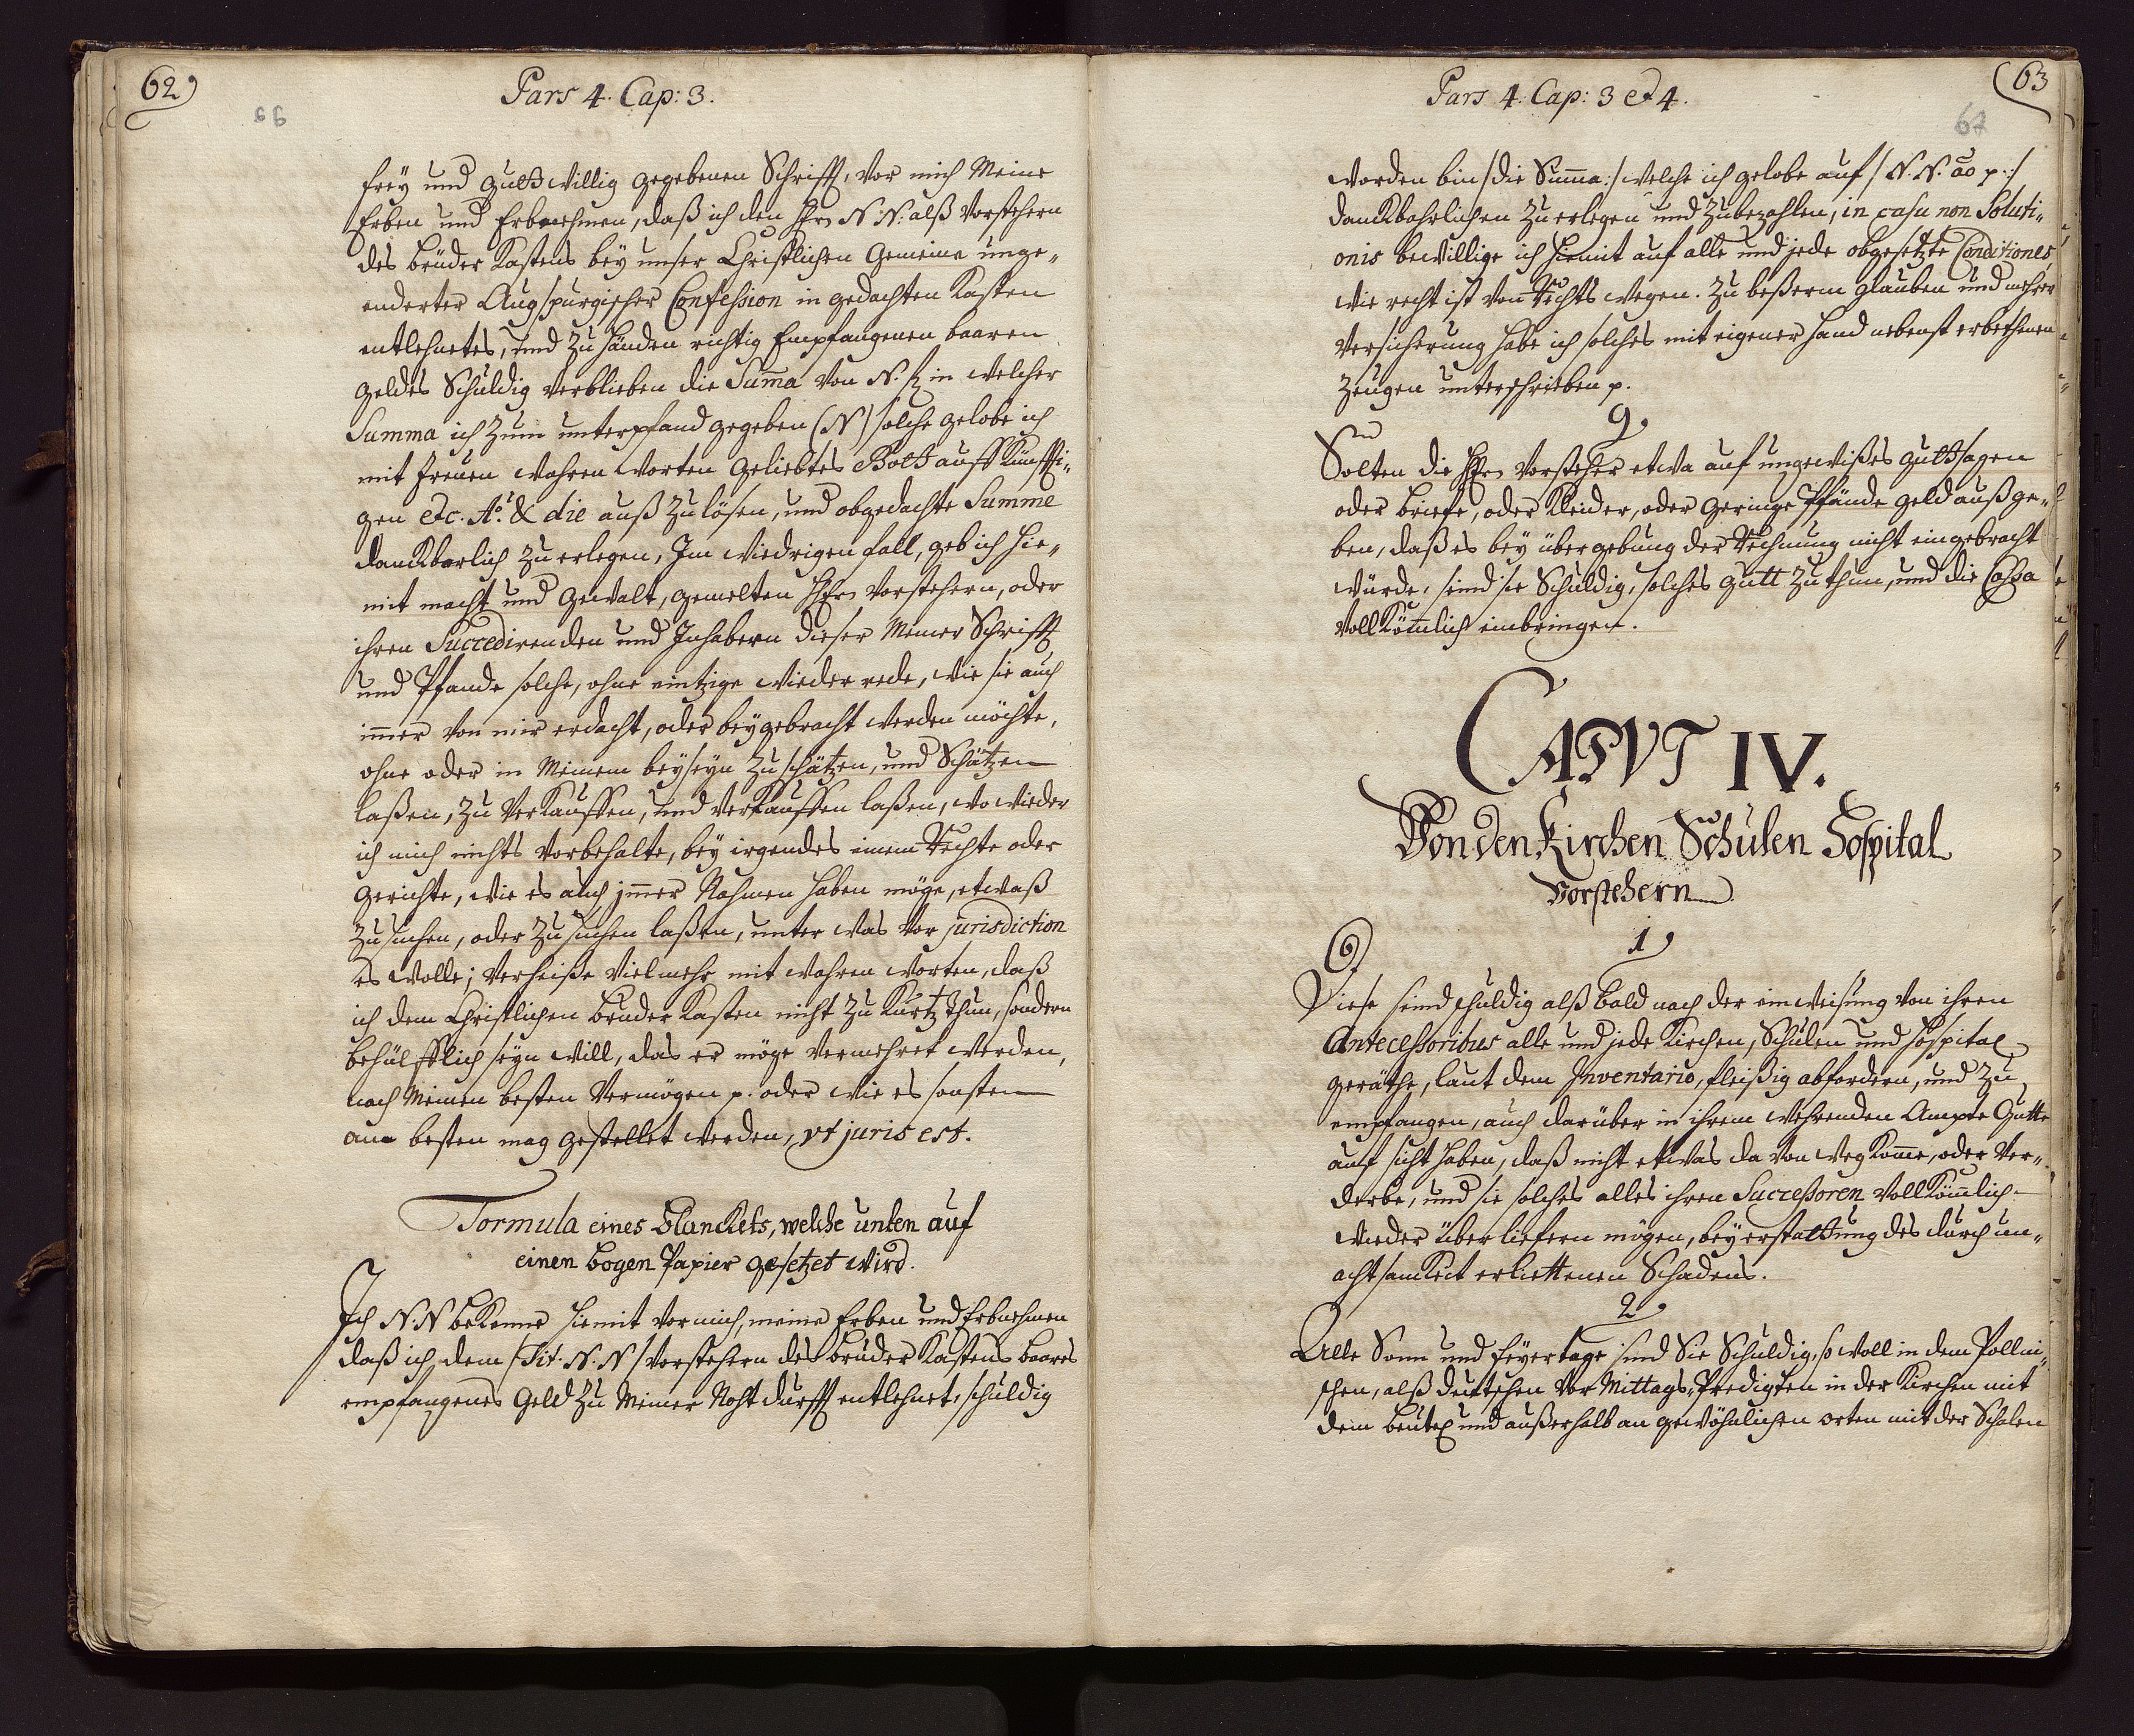 62
66
Pars 4. Cap: 3.
frey und guttwillig gegebenen Schrifft, vor mich Meine
Erben und Erbnehmen, daß ich den Hrn N: N: alß Vorstehern
des brüder Kastens bey unser Christlichen Gemeine unge„
enderter Augspurgischer Confession in gedachten Kasten
entlehnetes, und zu händen richtig Empfangenen baaren
geldes Schuldig verblieben die Sum̄a von N. in welcher
Summa ich zum unterpfand gegeben (N) solche gelobe ich
mit treuen wahren worten geliebtes Gott auff Künffti„
gen etc. Ao. & die auß zu lösen, und obgedachte Summe
danckbarlich zu erlegen, Im wiedrigen fall, geb ich hie„
mit macht und gewalt, gemelten Hrn Vorstehern, oder
ihren Succedirenden und Inhabern dieser Meiner Schrifft
und Pfande solche, ohne eintzige wieder rede, wie sie auch
im̄er von mir erdacht, oder beygebracht werden möchte,
ohne oder in Meinem beyseyn zu schätzen, und Schätzen
laßen, zu verkauffen, und verkauffen laßen, wo wieder
ich mich nichts vorbehalte, bey irgendes einem Rechte oder
gerichte, wie es auch jm̄er Nahmen haben möge, etwaß
zu suchen, oder zu suchen laßen, unter was vor jurisdiction
es wolle; verheiße vielmehr mit wahren worten, daß
ich dem Christlichen bruder Kasten nicht zu Kurtz thun, sondern
behülfflich seyn will, das er möge vermehret werden,
nach Meinen besten Vermögen p. oder wie es sonsten
am besten mag gestellet werden, vt juris est.
Formula eines blanckets, welche unten auf
einen bogen Papier gesetzet wird.
Ich N. N bekenne hiemit vor mich, meine Erben und Erbnehmen
daß ich dem /Tit. N. N/ Vorstehern des brüder Kastens baares
empfangenes Geld zu Meiner Nohtdurfft entlehnet, schuldig
63
67
Pars 4. Cap: 3 et 4.
worden bin /die Sum̄a:/ welche ich gelobe auf / N. N. ao p:/
danckbahrlichen zu erlegen und zubezahlen, in casu non Soluti„
onis bewillige ich hiemit auf alle und jede obgesetzte Conditiones
wie recht ist von Rechts wegen. Zu beßerm glauben und mehrer
versicherung habe ich solches mit eigener hand nebenst erbethenen
zeugen unterschrieben p.
9.
Solten die Hrn Vorsteher etwa auf ungewißes guttsagen
oder briefe, oder Kleider, oder geringe Pfände geld auß ge„
ben, daß es bey übergebung der Rechnung nicht eingebracht
würde, seind sie Schuldig, solches gutt zu thun, und die Cassa
vollköm̄lich einbringen.
CAPVT IV.
Von den Kirchen Schulen Hospital
Vorstehern
1
Diese seind schuldig alß bald nach der einweisung von ihren
Antecessoribus alle und jede Kirchen, Schulen und hospital
geräthe, laut dem Inventario, fleißig abfordern, und zu
empfangen, auch darüber in ihrem wehrenden Ampte Gutte
auf sicht haben, daß nicht etwas da von weg kom̄e, oder ver„
derbe, und sie solches alles ihren Successoren vollköm̄lich
wieder überliefern mögen, bey erstattung des durch un„
achtsamkeit erlittenen Schadens.
2
Alle Sonn und feyertage sind Sie Schuldig, so woll in dem Pollni„
schen, alß deutschen vor Mittags, Predigten in der Kirchen mit
dem beutel und außerhalb an gewöhnlichen orten mit der Schalen